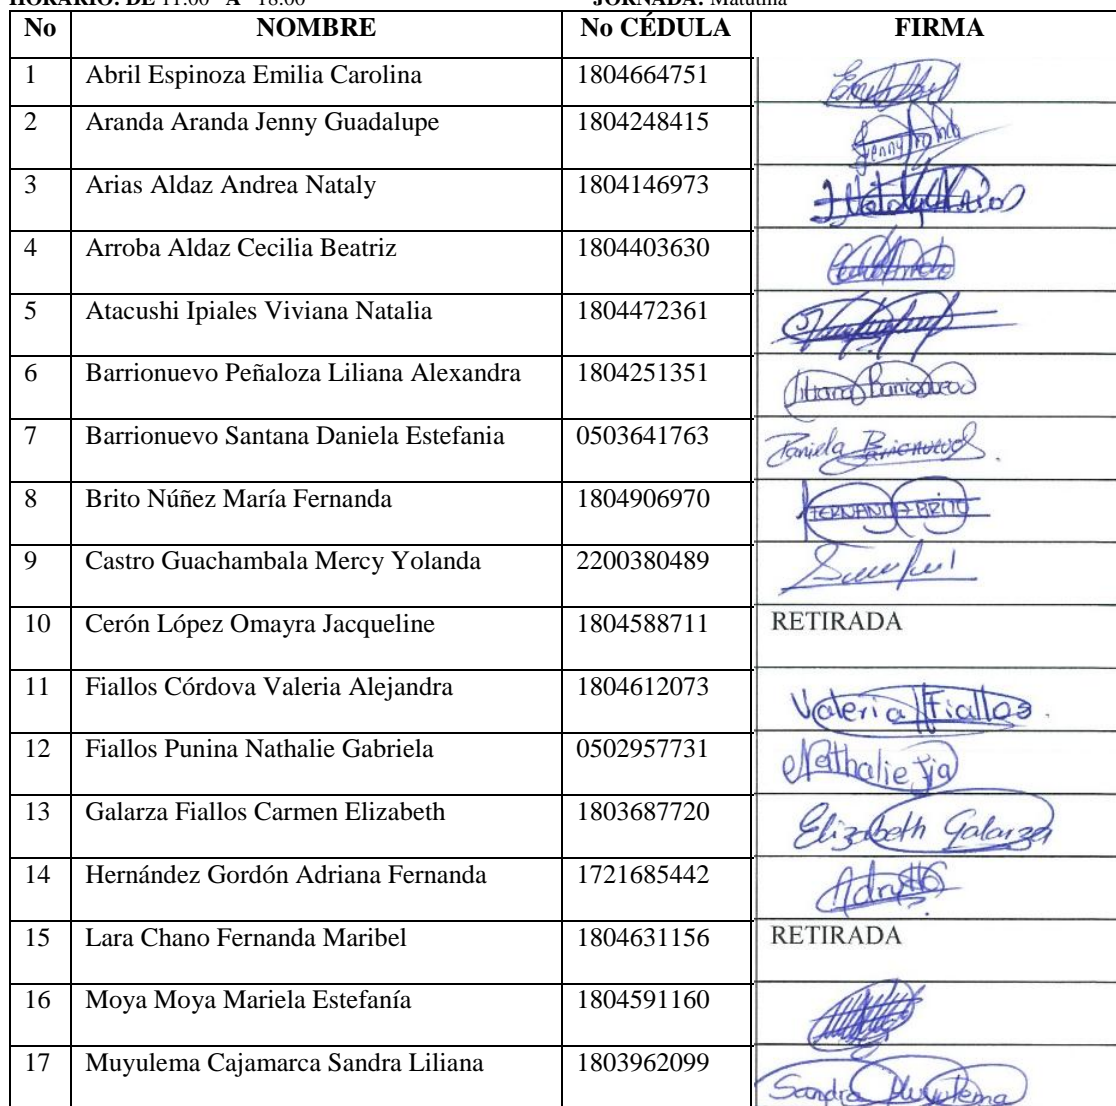 HORARIO: DE 11:00 A 18:00 JORNADA: Matutina
No NOMBRE No CÉDULA FIRMA
1 Abril Espinoza Emilia Carolina 1804664751
2 Aranda Aranda Jenny Guadalupe 1804248415 Jenny
3 Arias Aldaz Andrea Nataly 1804146973
4 Arroba Aldaz Cecilia Beatriz 1804403630
5 Atacushi Ipiales Viviana Natalia 1804472361
6 Barrionuevo Peñaloza Liliana Alexandra 1804251351 Liliana Barrionuevo
7 Barrionuevo Santana Daniela Estefania 0503641763 Daniela Barrionuevo
8 Brito Núñez María Fernanda 1804906970 FERNANDA BRITO
9 Castro Guachambala Mercy Yolanda 2200380489
10 Cerón López Omayra Jacqueline 1804588711 RETIRADA
11 Fiallos Córdova Valeria Alejandra 1804612073 Valeria Fiallos
12 Fiallos Punina Nathalie Gabriela 0502957731 Nathalie Fia
13 Galarza Fiallos Carmen Elizabeth 1803687720 Elizabeth Galarza
14 Hernández Gordón Adriana Fernanda 1721685442
15 Lara Chano Fernanda Maribel 1804631156 RETIRADA
16 Moya Moya Mariela Estefanía 1804591160
17 Muyulema Cajamarca Sandra Liliana 1803962099 Sandra Muyulema